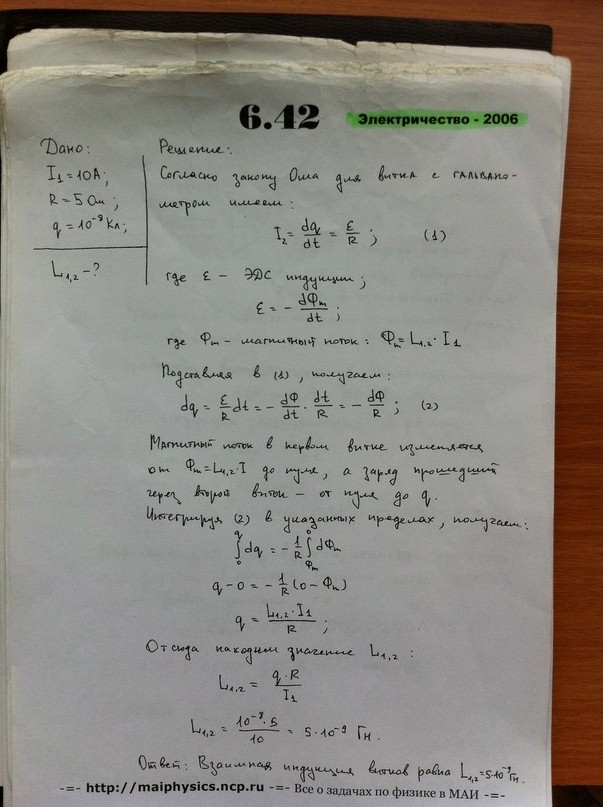 6.42
Электричество - 2006
Дано:
I₁ = 10 А;
R = 5 Ом;
q = 10⁻⁸ Кл;
L₁,₂ – ?
Решение:
Согласно закону Ома для витка с гальвано-
метром имеем:
I₂ = dq/dt = ε/R ; (1)
где ε – ЭДС индукции;
ε = - dΦₘ/dt ;
где Φₘ – магнитный поток: Φₘ = L₁,₂ · I₁
Подставляя в (1), получаем:
dq = ε/R dt = - dΦ/dt · dt/R = - dΦ/R ; (2)
Магнитный поток в первом витке изменяется
от Φₘ = L₁,₂ · I до нуля, а заряд прошедший
через второй виток – от нуля до q.
Интегрируя (2) в указанных пределах, получаем:
∫₀^q dq = - 1/R ∫_Φₘ^0 dΦₘ
q - 0 = - 1/R (0 - Φₘ)
q = L₁,₂ · I₁ / R ;
Отсюда находим значение L₁,₂ :
L₁,₂ = q · R / I₁
L₁,₂ = 10⁻⁸ · 5 / 10 = 5 · 10⁻⁹ Гн.
Ответ: Взаимная индукция витков равна L₁,₂ = 5·10⁻⁹ Гн.
-=- http://maiphysics.ncp.ru -=- Все о задачах по физике в МАИ -=-